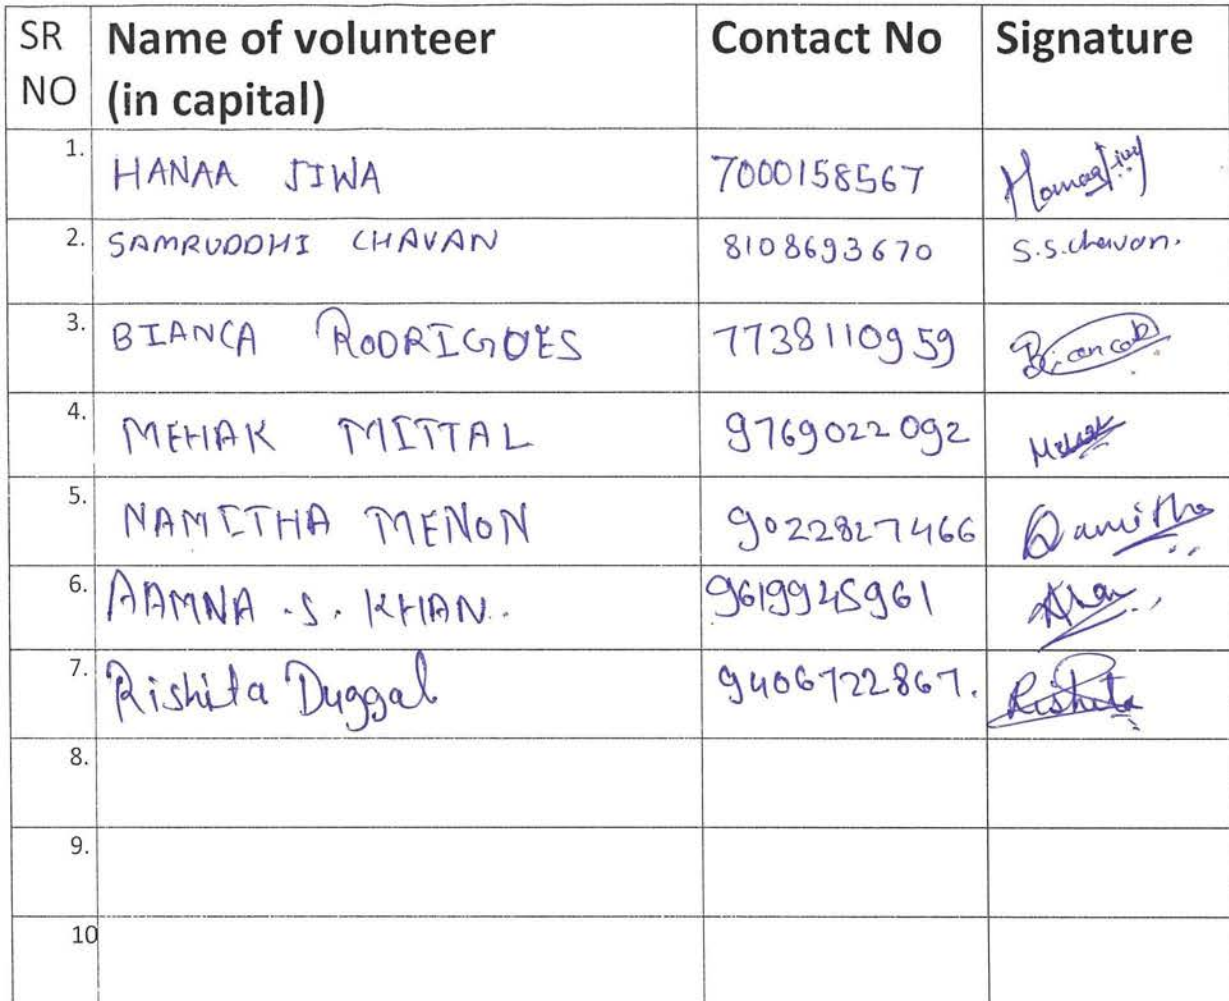 SR NO Name of volunteer (in capital) Contact No Signature
1. HANAA JIWA 7000158567
2. SAMRUDDHI CHAVAN 8108693670 S.S.chavan.
3. BIANCA RODRIGUES 7738110959
4. MEHAK MITTAL 9769022092 Mehak
5. NAMITHA MENON 9022827466 Namitha
6. AAMNA .S. KHAN. 9619945961 Khan
7. Rishita Duggal 9406722867. Rishita
8.
9.
10